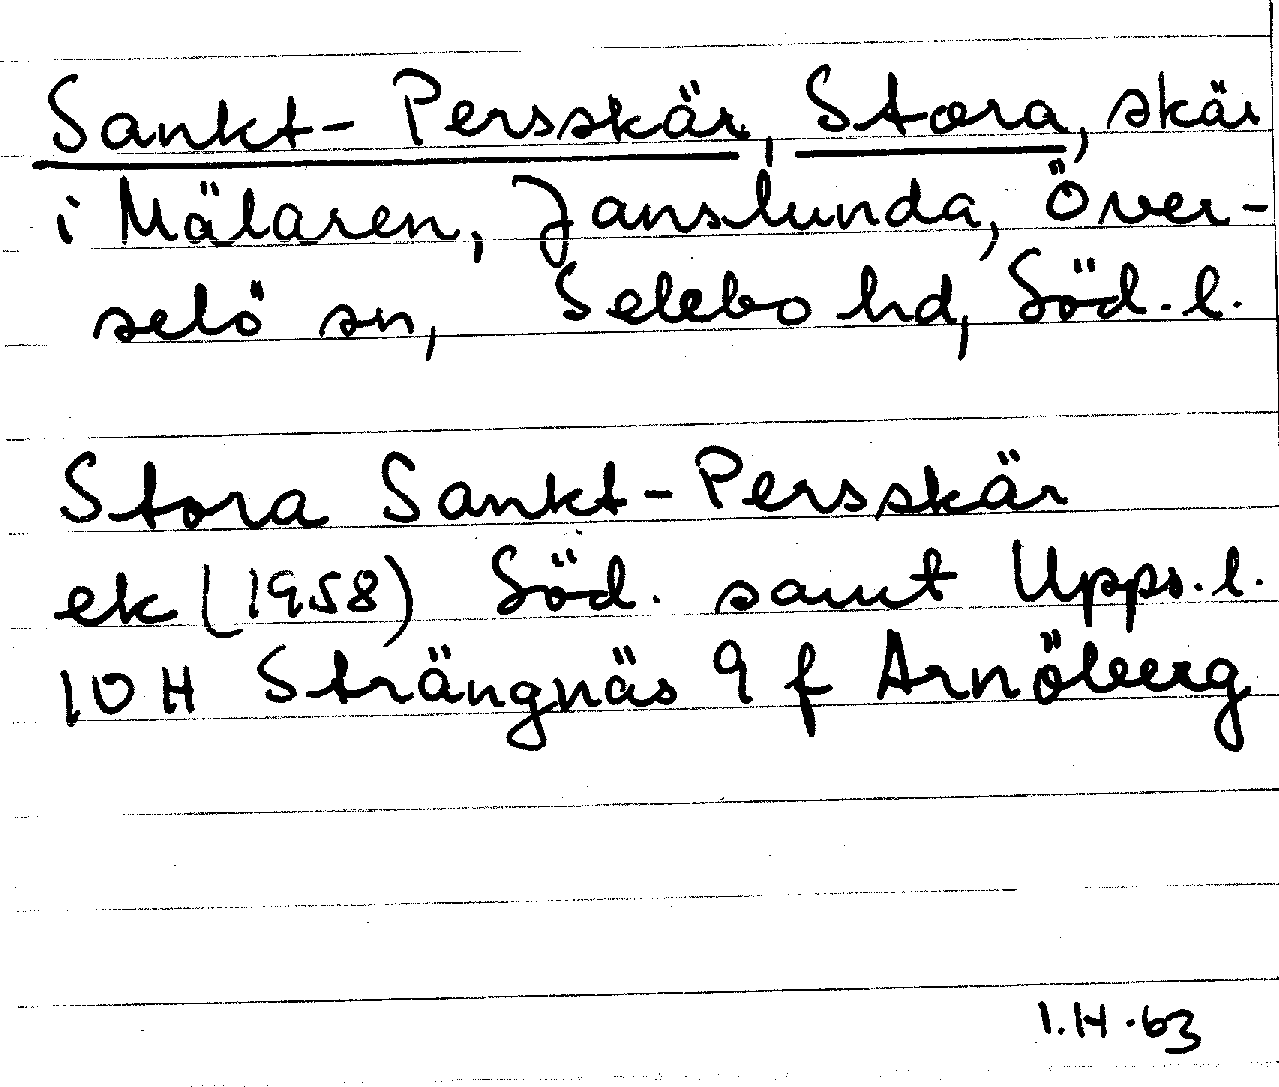 Sankt-Persskär, Stora, skär
i Mälaren, Janslunda, Över-
selö sn, Selebo hd, Söd. l.
Stora Sankt-Persskär
ek (1958) Söd. samt Upps. l.
10 H Strängnäs 9 f Arnöberg
I.H.63